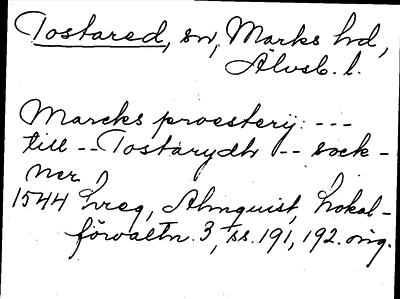 Tostared, sn, Marks hd,
Älvsb. l.
Marcks proesterij: ---
till -- Tostarydh -- sock-
ner
1544 hreg, Almquist, Lokal-
förvaltn. 3, ss. 191, 192. orig.